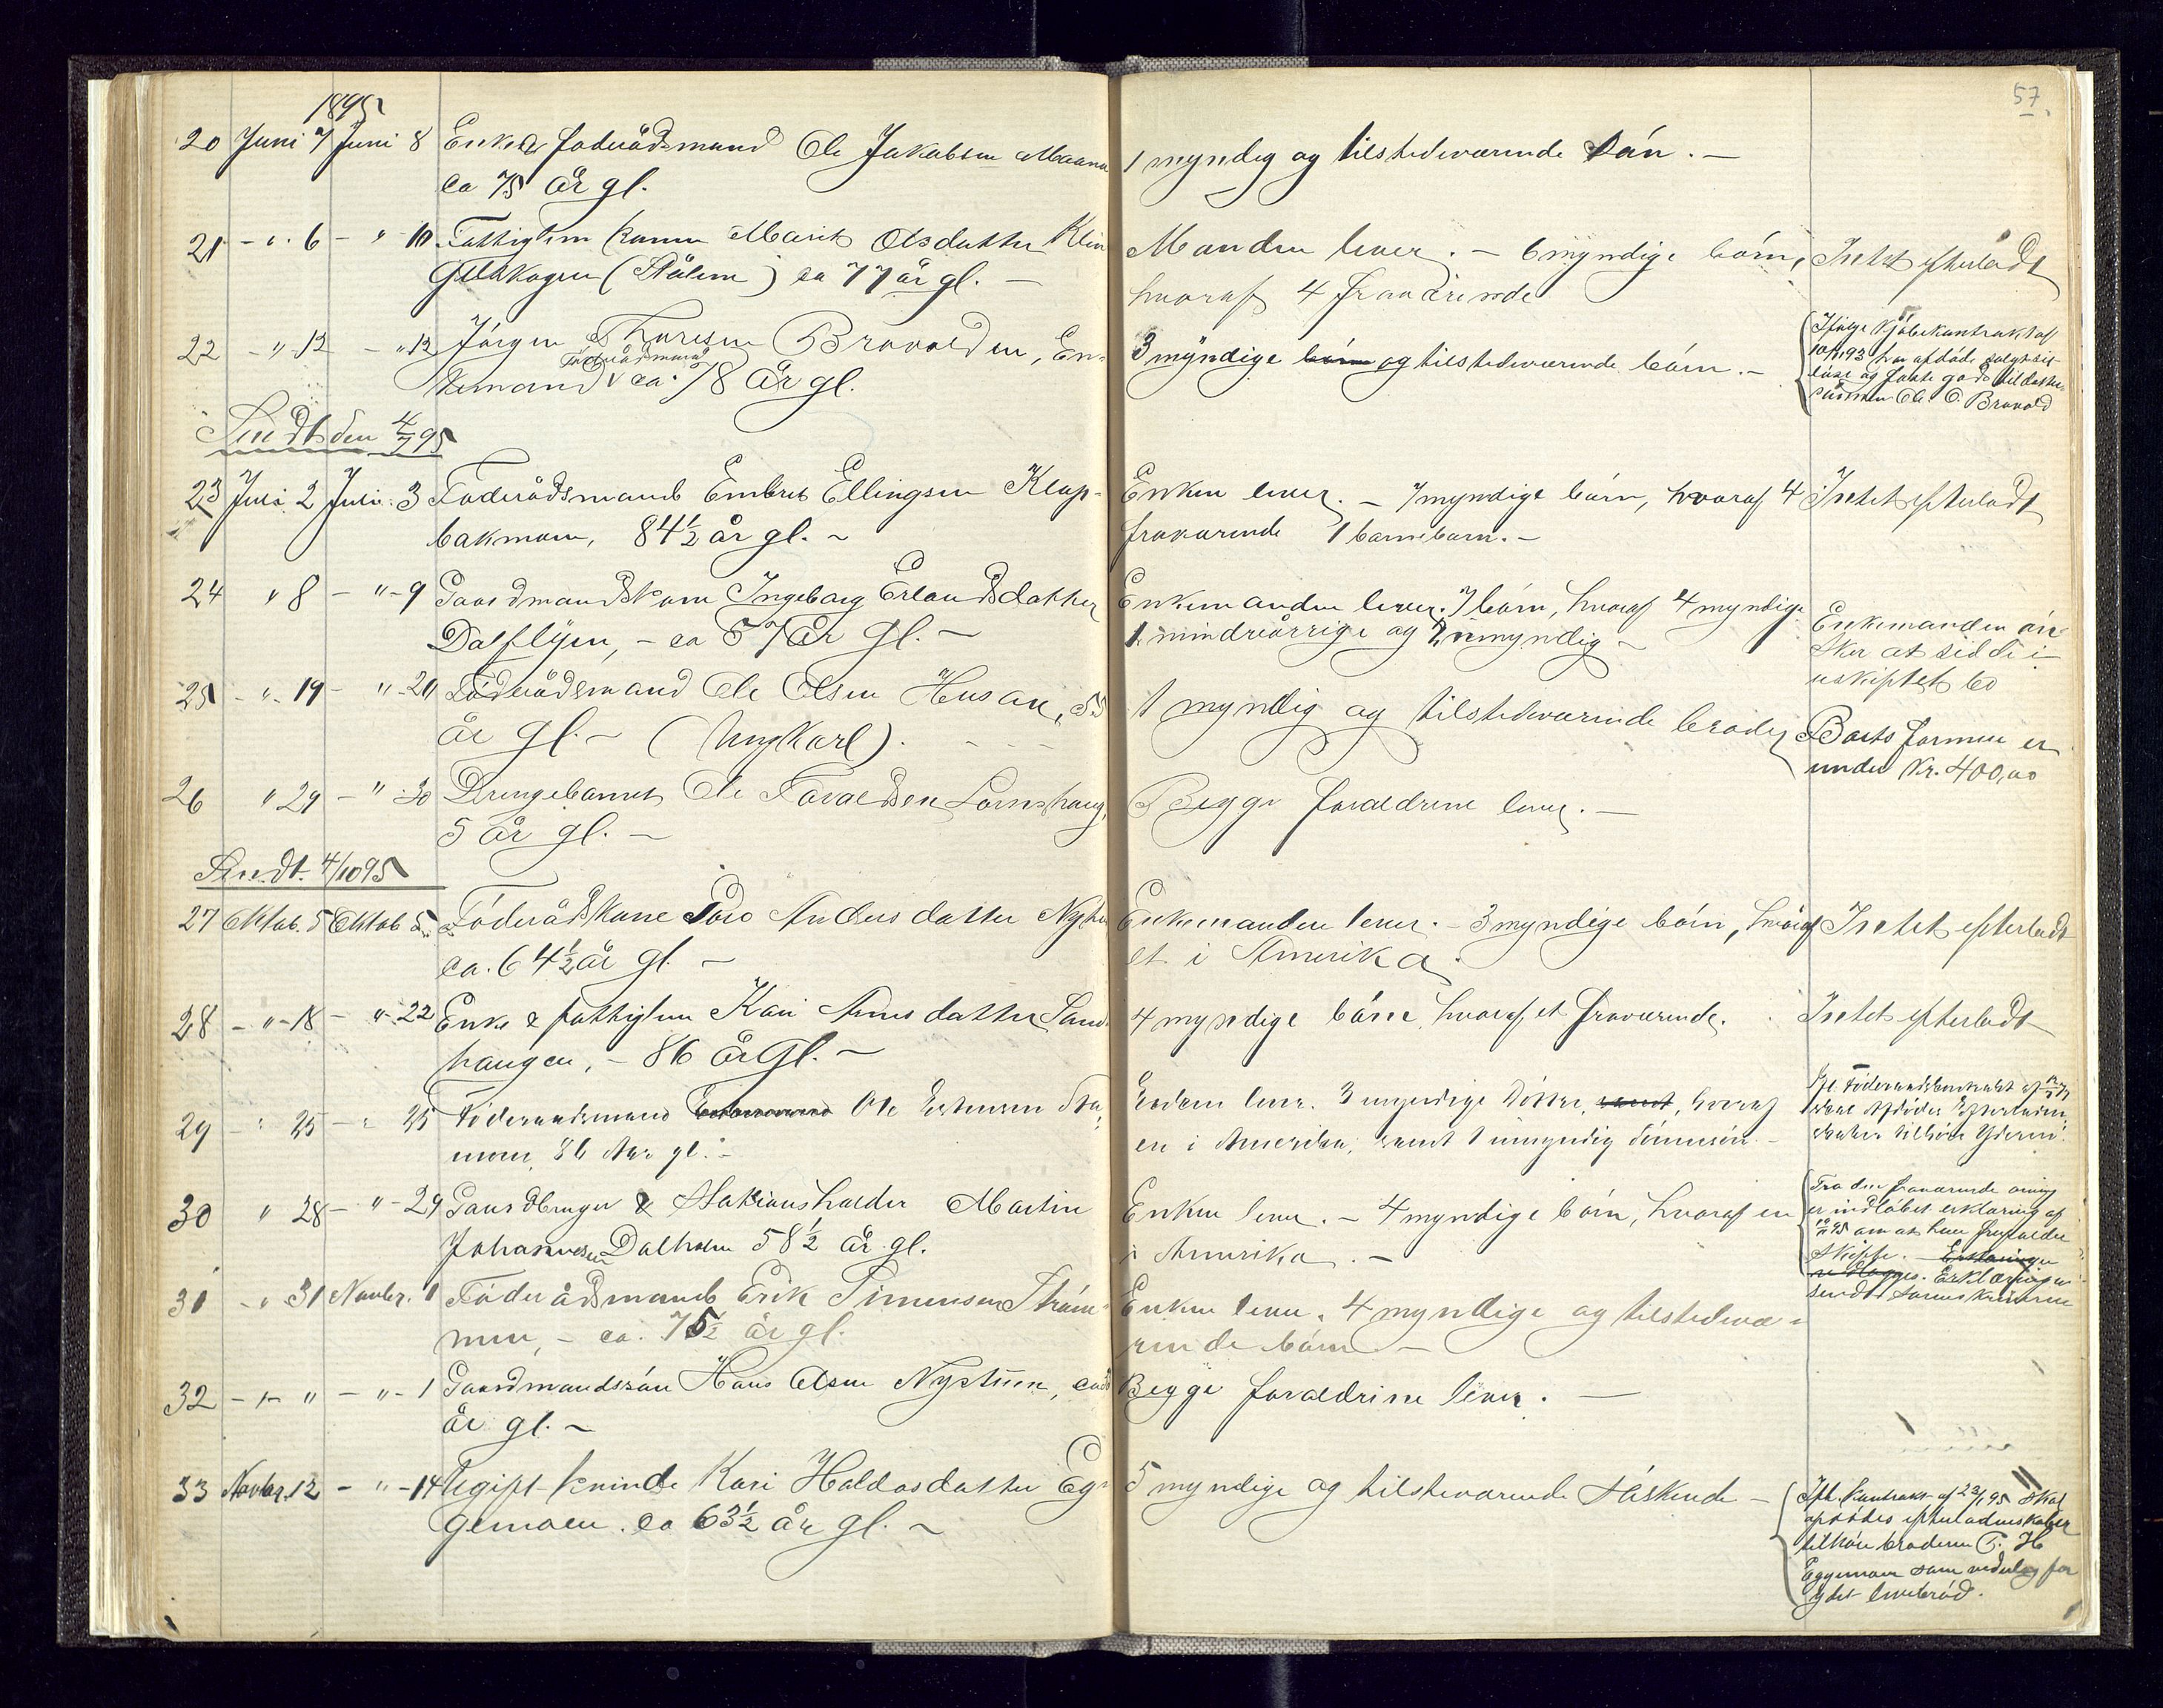 57.
1895
20 Juni 7 Juni 8 Enke & foderådsmand Ole Jakobsen Maana
ca 75 år gl.
1 myndig og tilstedeværende sön. —
21 - " 6 - " 10. Fattiglem kone Marit Olsdatter Klin
gelskogen (Stålien) ca 77 år gl. —
Manden lever. — 6 myndige börn,
hvoraf 4 fraværende
Intet efterladt
22 - " 12 - " 12 Jörgen Thoresen Bravolden, En-
kemand Föderådsmand ca. 78 år gl.
3 myndige börn og tilstedeværende börn. —
Ifölge kjöbekontrakt af
10/1 93 har afdöde solgt sit
löse og faste gods til datter-
sönnen Ole O. Bravold
Sendt den 4/7 95
23 Juli 2 Juli 3 Föderådsmand Embret Ellingsen Klop-
bakmoen, 84½ år gl. —
Enken lever. — 7 myndige börn, hvoraf 4
fraværende 1 barnebarn. —
Intet efterladt
24 " 8 - " - 9 Gaardmandskone Ingeborg Erlandsdatter
Dalflyen, — ca 57 år gl. —
Enkemanden lever. 7 börn, hvoraf 4 myndige
1 mindreårrige og 2 umyndig —
Enkemanden ön-
sker at sidde i
uskiftet bo
25 - " 19 - " 20 Föderådsmand Ole Olsen Husan, 55
år gl. — (Ungkarl).
1 myndig og tilstedeværende broder
Boets formue er
under Kr. 400,00
26 " 29 - " 30 Drengebarnet Ole Tovaldsen Lornshaug,
5 år gl. —
Begge forældrene lever. —
Sendt. 4/10 95
27 Oktob. 5 Oktob 5. Föderådskone Andersdatter
ca. 64½ år gl. —
Enkemanden lever. — 3 myndige börn, hvoraf
et i Amerika.
Intet efterladt
28 - " - 18 - " - 22 Enke & fattiglem Kari Arnesdatter Sand-
haugen, — 86 år gl. —
4 myndige börn, hvoraf et fraværende.
Intet efterladt
29 - " 25 - " 25 Föderaadsmand Ole Estensen
moen, 86 Aar gl. —
Enken lever. 3 myndige Döttre, samt, hvoraf
en i Amerika, samt 1 umyndig Sönnesön —
Ifl. Föderaadskontrakt af
skal Afdödes Efterladen-
skaber tilhöre Yderen.
30 " 28 - " - 29 Gaardbruger & Stationsholder Martin
Johannesen Dalholm 58½ år gl.
Enken lever. — 4 myndige börn, hvoraf en
i Amerika. —
Fra den fraværende arving
er indlöbet erklæring af
95 om at han frafalder
skifte. — Erklæringen
vedlægges. Erklæringen
sendt Sorenskriveren
31 - " 31 Novbr. 1 Föderådsmand Erik Simensen Ström-
men, — ca. 75½ år gl.
Enken lever. 4 myndige og tilstedevæ-
rende börn —
32 - " - " - " - 1 Gaardmandssön Hans Olsen Nystuen,
år gl. —
Begge forældrene lever. —
33 Novbr. 12 - " - 14 Ugift kvinde Kari Haldosdatter Eg-
gemoen. ca 63½ år gl. —
5 myndige og tilsteværende söskende —
Ifl. Kontrakt af 23/1 95 skal
afdödes efterladenskaber
tilhöre broderen T. H
Eggemoen som vederlag for
ydet levebröd.